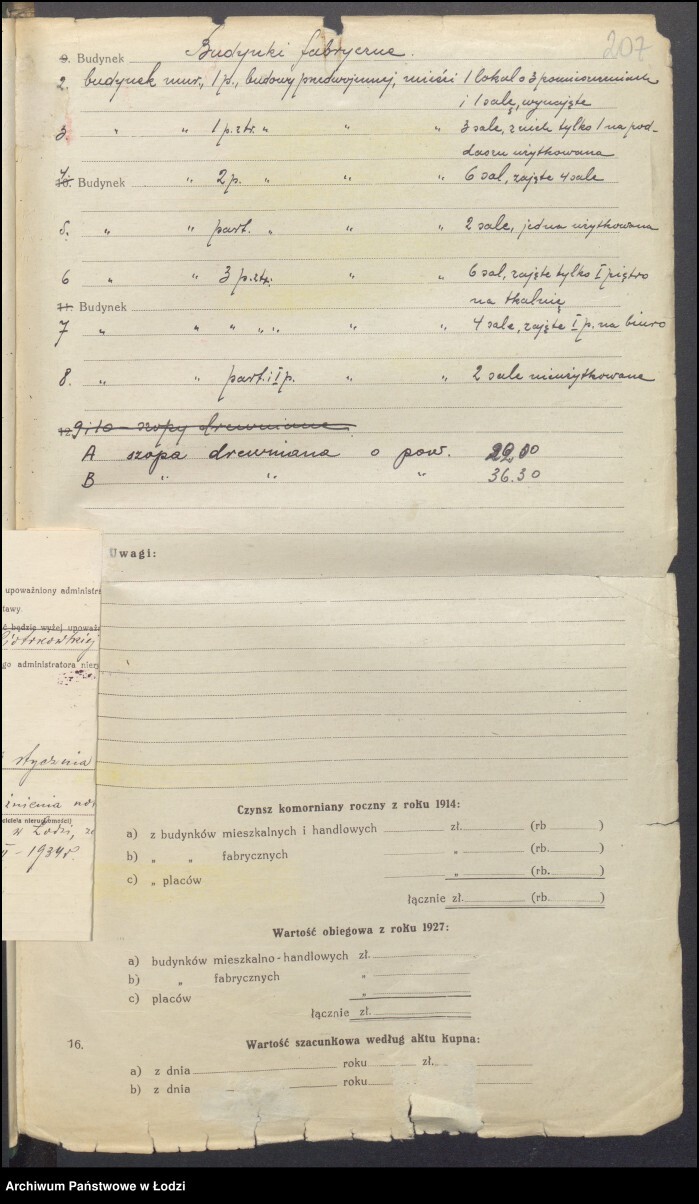 207
9. Budynek Budynki fabryczne.
2. budynek mur., 1 p., budowy przedwojennej, mieści 1 lokal o 3 pomieszczeniach
i 1 salę, wynajęte
3. " " 1 p. ztr. " " " 3 sale, z nich tylko 1 na pod-
daszu użytkowana
4 10. Budynek " 2 p. " " " 6 sal, zajęte 4 sale
5. " " part. " " " 2 sale, jedna użytkowana
6 " " 3 p. ztr. " " 6 sal, zajęte tylko I piętro
na tkalnię
11. Budynek
7 " " " " " " " 4 sale, zajęte I p. na biuro
8. " " part. i I p. " " 2 sale nieużytkowane
12. 9 i 10 - szopy drewniane.
A szopa drewniana o pow. 22,00
B " " " 36.30
Uwagi:
upoważniony administra
tawy.
będzie wyżej upoważ
Piotrkowskiej
go administratora nier
stycznia
żnienia
ciciela nieruchomości
w Łodzi,
- 1934 r.
Czynsz komorniany roczny z roku 1914:
a) z budynków mieszkalnych i handlowych zł. (rb )
b) " " fabrycznych " (rb. )
c) " placów " (rb. )
łącznie zł. (rb. )
Wartość obiegowa z roku 1927:
a) budynków mieszkalno-handlowych zł.
b) " fabrycznych "
c) placów "
łącznie zł.
16. Wartość szacunkowa według aktu kupna:
a) z dnia roku zł.
b) z dnia roku
Archiwum Państwowe w Łodzi